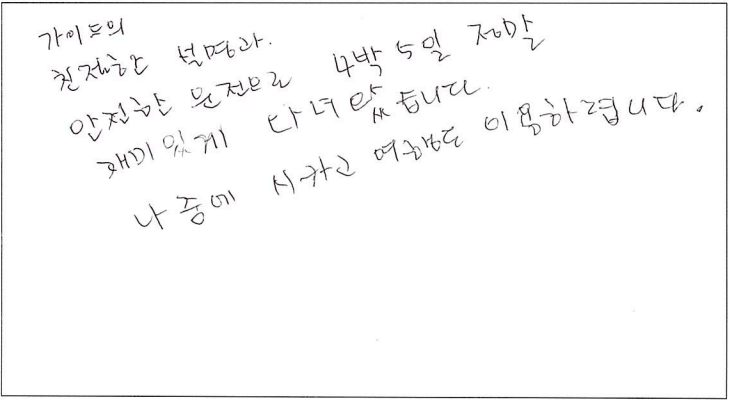 가이드의
친절한 설명과.
안전한 운전으로 4박 5일 정말
재미있게 다녀왔습니다.
나중에 시카고 여행도 이용하렵니다.